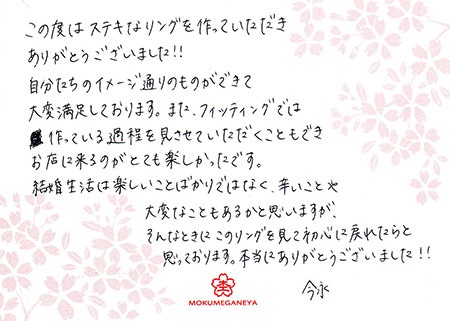 この度はステキなリングを作っていただき
ありがとうございました!!
自分たちのイメージ通りのものができて
大変満足しております。また、フィッティングでは
作っている過程を見させていただくこともでき
お店に来るのがとても楽しかったです。
結婚生活は楽しいことばかりではなく、辛いことや
大変なこともあるかと思いますが、
そんなときにこのリングを見て初心に戻れたらと
思っております。本当にありがとうございました!!
今永
MOKUMEGANEYA